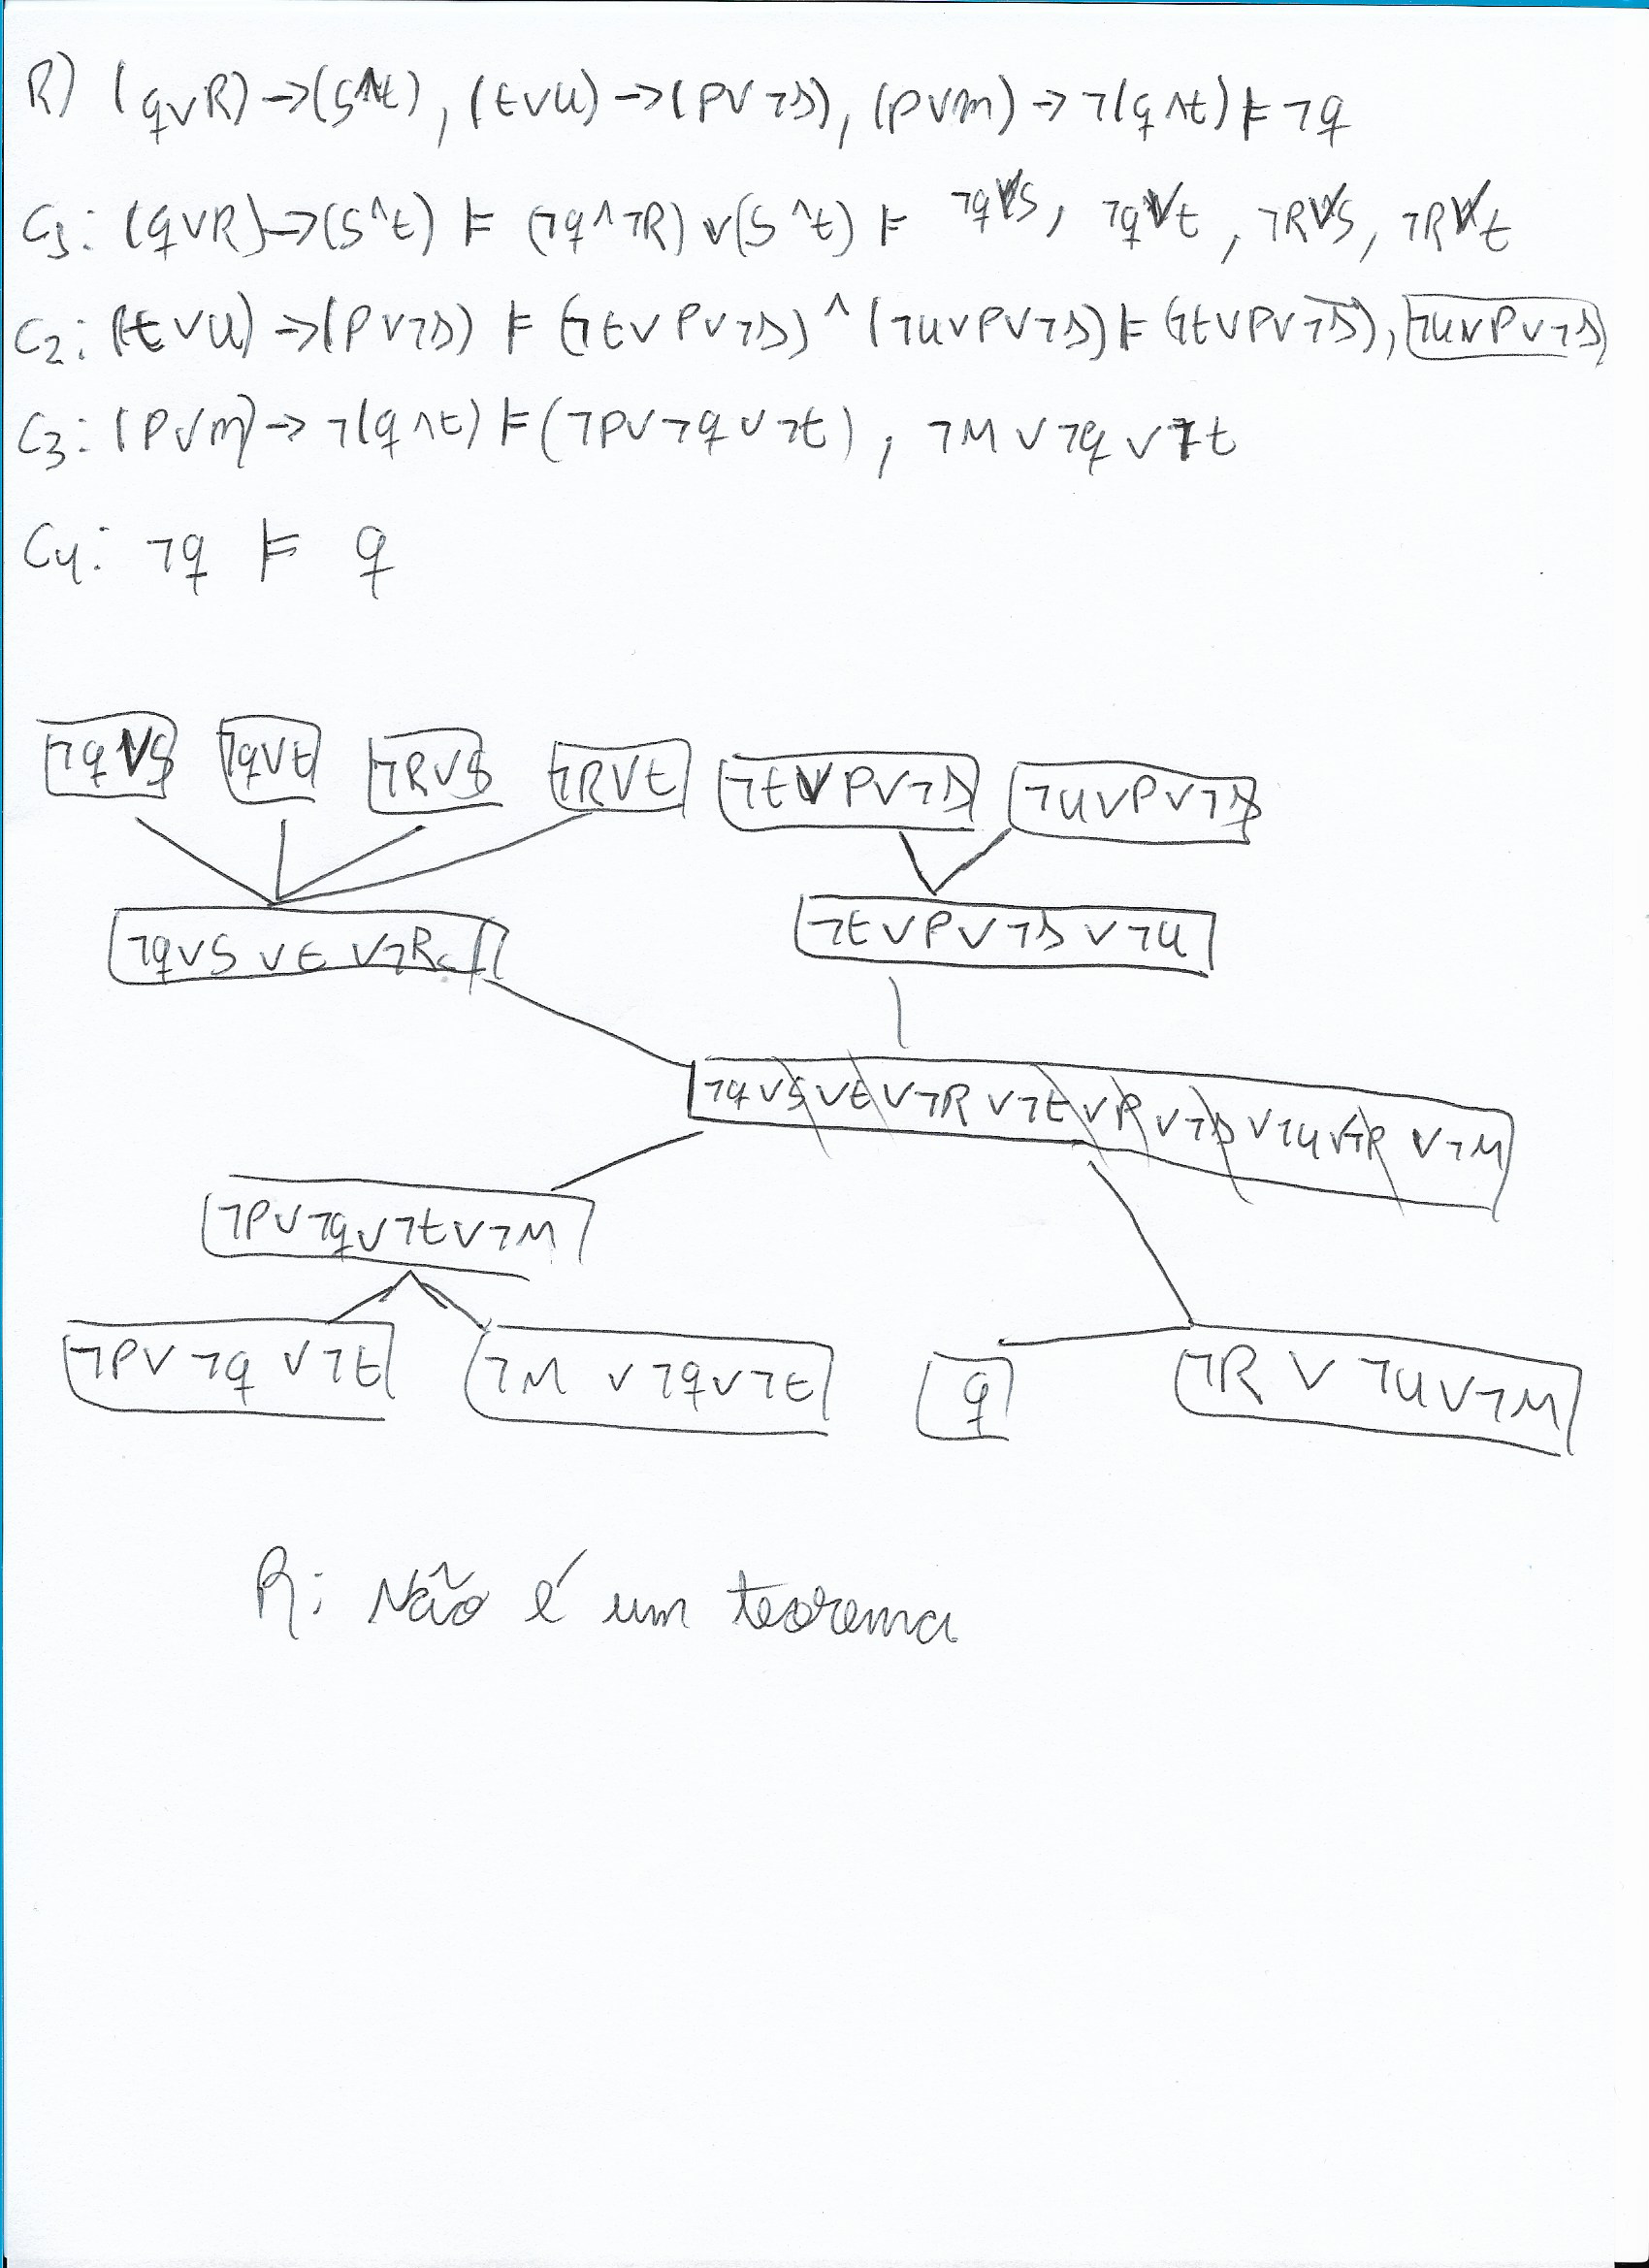 R) (q∨R)→(S∧t), (t∨u)→(P∨¬s), (p∨m)→¬(q∧t) ⊧ ¬q
C1: (q∨R)→(S∧t) ⊧ (¬q∧¬R)∨(S∧t) ⊧ ¬q∨S, ¬q∨t, ¬R∨S, ¬R∨t
C2: (t∨u)→(P∨¬s) ⊧ (¬t∨P∨¬s)∧(¬u∨P∨¬s) ⊧ (¬t∨P∨¬s), ¬u∨P∨¬s
C3: (P∨m)→¬(q∧t) ⊧ (¬P∨¬q∨¬t), ¬M∨¬q∨¬t
C4: ¬q ⊧ q
¬q∨S ¬q∨t ¬R∨S ¬R∨t ¬t∨P∨¬s ¬u∨P∨¬s
¬q∨S∨t∨¬R ¬t∨P∨¬s∨¬u
¬q∨S∨t∨¬R∨¬t∨P∨¬s∨¬u∨¬P∨¬M
¬P∨¬q∨¬t∨¬M
¬P∨¬q∨¬t ¬M∨¬q∨¬t q ¬R∨¬u∨¬M
R: Não é um teorema